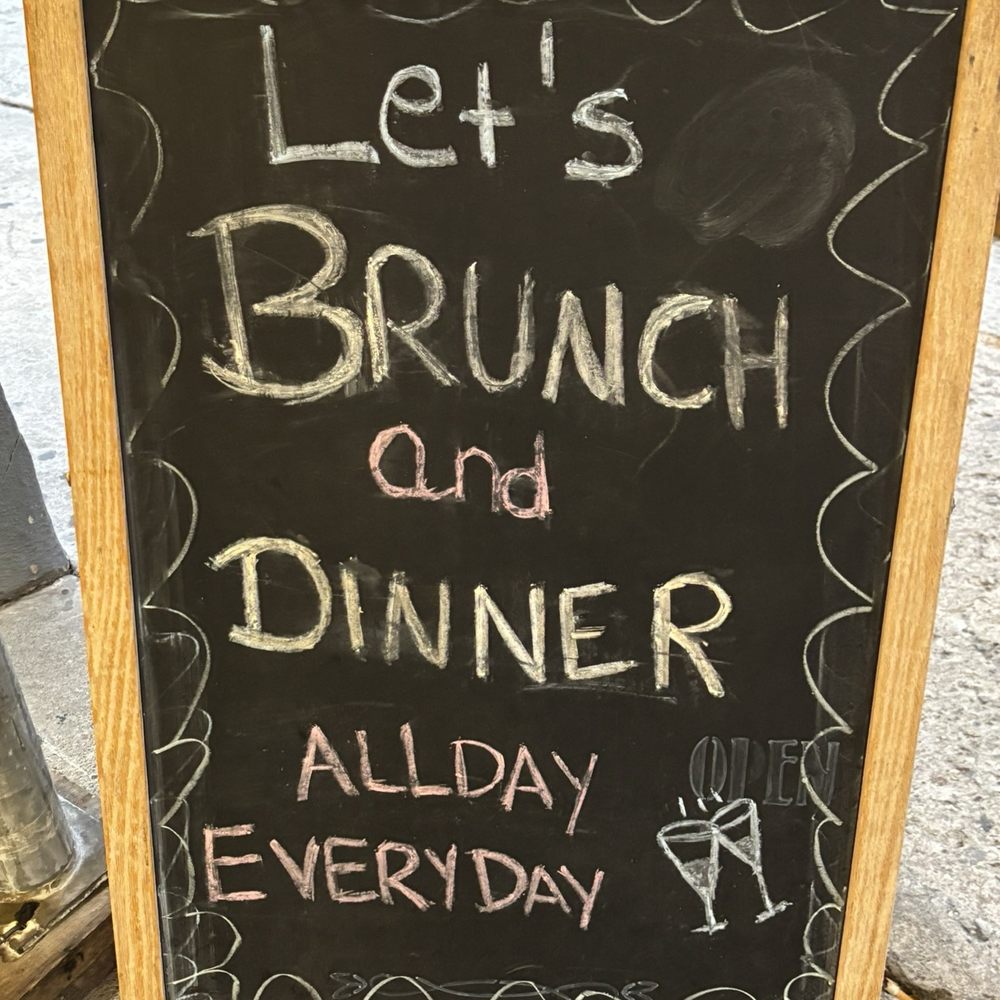 Let's
BRUNCH
and
DINNER
ALLDAY
OPEN
EVERYDAY